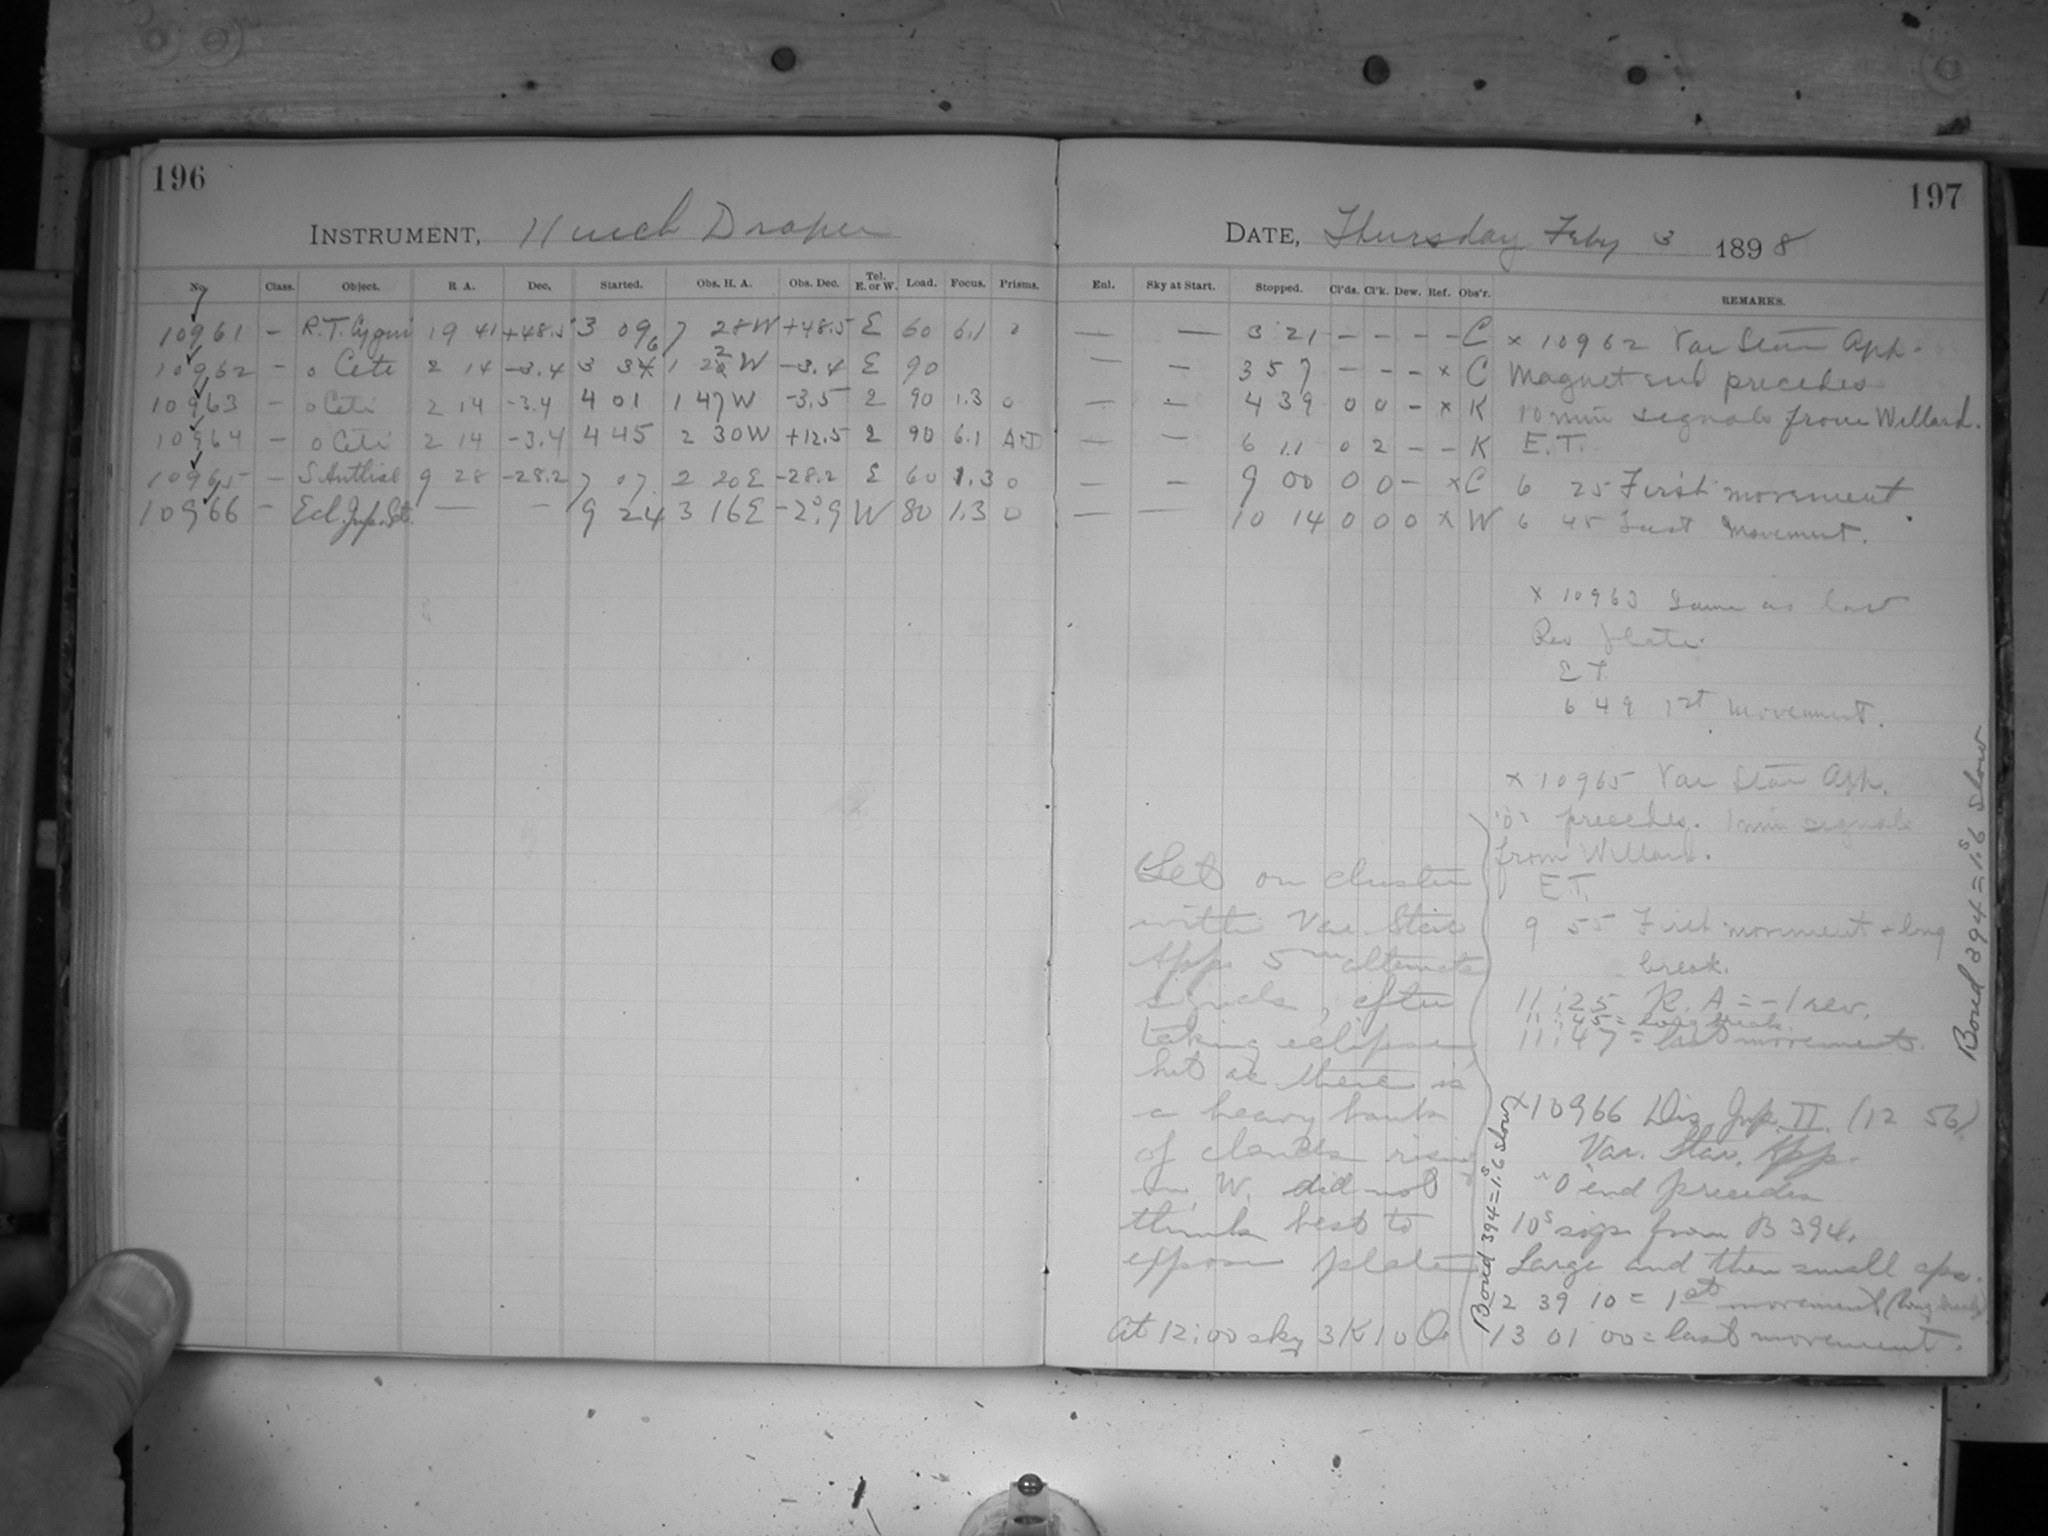 196
INSTRUMENT, 11 inch Draper
No. Class. Object. R A. Dec. Started. Obs. H. A. Obs. Dec. Tel. E. or W. Load. Focus. Prisms.
10961 — R.T. Cygni 19 41 +48.5 3 09 7 28 W +48.5 E 60 6.1
10962 — o Ceti 2 14 -3.4 3 36 1 22 W -3.4 E 90
10963 — o Ceti 2 14 -3.4 4 01 1 47 W -3.5 E 90 1.3 0
10964 — o Ceti 2 14 -3.4 4 45 2 30 W +12.5 E 90 6.1
10965 — S Antliae 9 28 -28.2 7 07 2 20 E -28.2 E 60 1.3 0
10966 — Ecl. Jup. Sat. — — 9 24 3 16 E -2.9 W 80 1.3 0
197
DATE, Thursday Feby 3 1898
Enl. Sky at Start. Stopped. Cl'ds. Cl'k. Dew. Ref. Obs'r. REMARKS.
— — 3 21 — — — — C x 10962 Var Star App.
— — 3 57 — — — x C Magnet end precedes
— — 4 39 0 0 — x K 10 min signals from Willard.
— — 6 11 0 2 — — K E.T.
— — 9 00 0 0 — x C 6 25 First movement
— — 10 14 0 0 0 x W 6 45 Last movement.
x 10963 Same as last
Rev plate.
E T.
6 49 1st movement.
x 10965 Var Star App.
"0" precedes. 1 min signals
from Willard.
E.T.
9 55 First movement + long
break.
11:25 R. A = -1 rev.
11:45 = long break.
11:47 = last movement.
x 10966 Dis. Jup. II. (12 56)
Var. Star. App.
"0" end precedes
10s sigs from B 394.
Large and then small aps.
12 39 10 = 1st movement (long break)
13 01 00 = last movement.
Bond 394 = 1.s6 slow
Bond 394 = 1.s6 slow
Set on cluster
with Var Star
App 5m alternate
signals, after
taking eclipse
but as there is
a heavy bank
of clouds rising
in W. did not
think best to
expose plate
At 12:00 sky 3 K 10 0